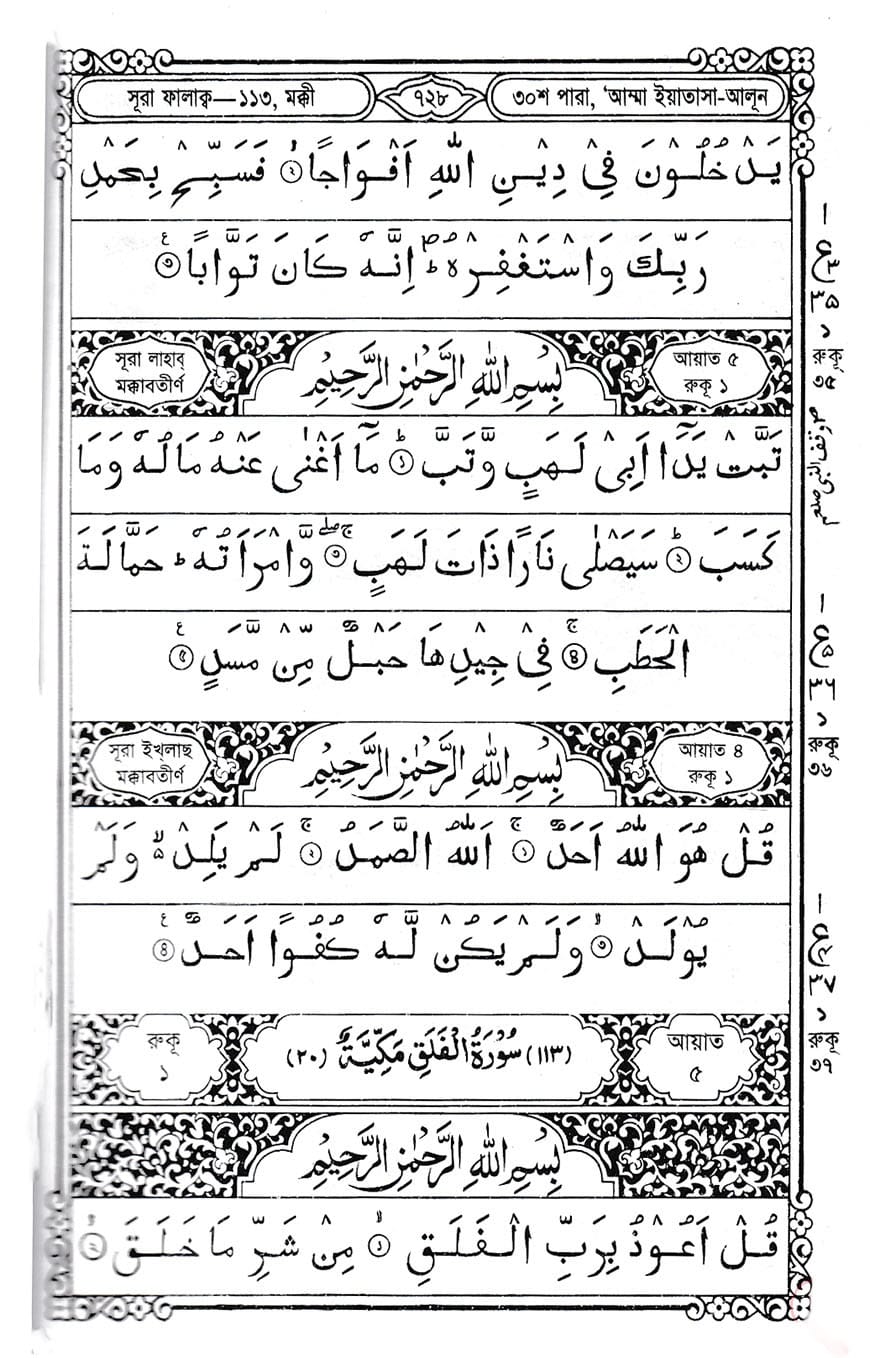 সূরা ফালাক্ব—১১৩, মক্কী
৭২৮
৩০শ পারা, ‘আম্মা ইয়াতাসা-আলূন
يَدْخُلُوْنَ فِيْ دِيْنِ اللّٰهِ اَفْوَاجًا ۙ ﴿২﴾ فَسَبِّحْ بِحَمْدِ
رَبِّكَ وَاسْتَغْفِرْهُ ؕ اِنَّهٗ كَانَ تَوَّابًا ﴿৩﴾ ع
সূরা লাহাব্
মক্কাবতীর্ণ
بِسْمِ اللّٰهِ الرَّحْمٰنِ الرَّحِيْمِ
আয়াত ৫
রুকূ ১
تَبَّتْ يَدَآ اَبِيْ لَهَبٍ وَّتَبَّ ؕ ﴿১﴾ مَآ اَغْنٰى عَنْهُ مَالُهٗ وَمَا
كَسَبَ ؕ ﴿২﴾ سَيَصْلٰى نَارًا ذَاتَ لَهَبٍ ۚۖ ﴿৩﴾ وَّامْرَاَتُهٗ ؕ حَمَّالَةَ
الْحَطَبِ ۚ ﴿৪﴾ فِيْ جِيْدِهَا حَبْلٌ مِّنْ مَّسَدٍ ﴿৫﴾ ع
সূরা ইখ্‌লাছ
মক্কাবতীর্ণ
بِسْمِ اللّٰهِ الرَّحْمٰنِ الرَّحِيْمِ
আয়াত ৪
রুকূ ১
قُلْ هُوَ اللّٰهُ اَحَدٌ ۚ ﴿১﴾ اَللّٰهُ الصَّمَدُ ۚ ﴿২﴾ لَمْ يَلِدْ ۙ۬ وَلَمْ
يُوْلَدْ ۙ ﴿৩﴾ وَلَمْ يَكُنْ لَّهٗ كُفُوًا اَحَدٌ ﴿৪﴾ ع
রুকূ
১
(١١٣) سُوْرَةُ الْفَلَقِ مَكِّيَّةٌ (٢٠)
আয়াত
৫
بِسْمِ اللّٰهِ الرَّحْمٰنِ الرَّحِيْمِ
قُلْ اَعُوْذُ بِرَبِّ الْفَلَقِ ۙ ﴿১﴾ مِنْ شَرِّ مَا خَلَقَ ۙ ﴿২﴾
রুকূ
৩৫
রুকূ
৩৬
রুকূ
৩৭